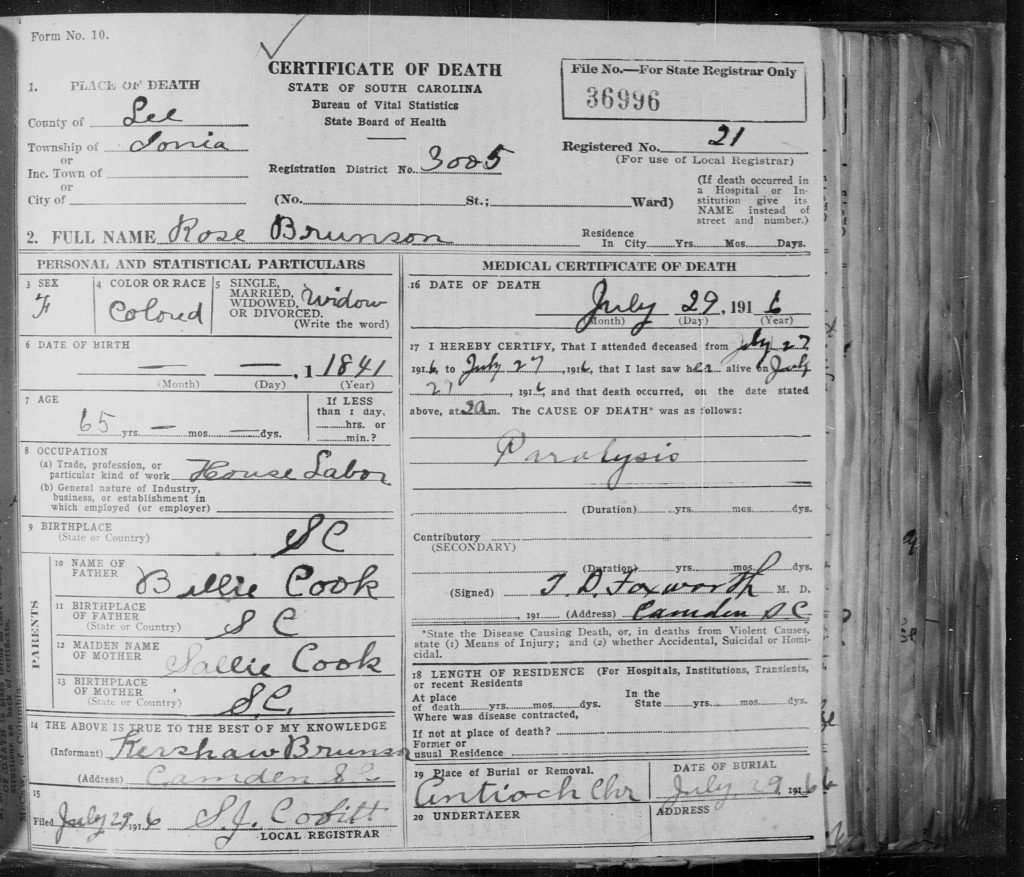 Form No. 10.
CERTIFICATE OF DEATH
STATE OF SOUTH CAROLINA
Bureau of Vital Statistics
State Board of Health
File No.—For State Registrar Only
36996
1. PLACE OF DEATH
County of Lee
Township of Ionia
or
Inc. Town of
or
City of
Registration District No. 3005
Registered No. 21
(For use of Local Registrar)
(No. St.; Ward)
(If death occurred in
a Hospital or In-
stitution give its
NAME instead of
street and number.)
2. FULL NAME Rose Brunson
Residence
In City Yrs. Mos. Days.
PERSONAL AND STATISTICAL PARTICULARS
3 SEX
F
4 COLOR OR RACE
Colored
5 SINGLE,
MARRIED,
WIDOWED,
OR DIVORCED.
Widow
(Write the word)
6 DATE OF BIRTH
— — , 1 1841
(Month) (Day) (Year)
7 AGE
65 yrs. — mos. — dys.
If LESS
than 1 day.
hrs. or
min.?
8 OCCUPATION
(a) Trade, profession, or
particular kind of work House Labor
(b) General nature of Industry,
business, or establishment in
which employed (or employer)
9 BIRTHPLACE
(State or Country)
S C
PARENTS
10 NAME OF
FATHER
Billie Cook
11 BIRTHPLACE
OF FATHER
(State or Country)
S C
12 MAIDEN NAME
OF MOTHER
Sallie Cook
13 BIRTHPLACE
OF MOTHER
(State or Country)
S.C.
14 THE ABOVE IS TRUE TO THE BEST OF MY KNOWLEDGE
(Informant) Kershaw Brunson
(Address) Camden S C
15
Filed July 29 1916
LOCAL REGISTRAR
MEDICAL CERTIFICATE OF DEATH
16 DATE OF DEATH
July 29, 1916
(Month) (Day) (Year)
17 I HEREBY CERTIFY, That I attended deceased from July 27
1916, to July 27, 1916, that I last saw her alive on July
27, 1916, and that death occurred, on the date stated
above, at 2 a m. The CAUSE OF DEATH* was as follows:
Paralysis
(Duration) yrs. mos. dys.
Contributory
(SECONDARY)
(Duration) yrs. mos. dys.
(Signed) T. D. Foxworth M. D.
, 191 (Address) Camden S.C.
*State the Disease Causing Death, or, in deaths from Violent Causes,
state (1) Means of Injury; and (2) whether Accidental, Suicidal or Homi-
cidal.
18 LENGTH OF RESIDENCE (For Hospitals, Institutions, Transients,
or recent Residents
At place
of death yrs. mos. dys.
In the
State yrs. mos. dys.
Where was disease contracted,
If not at place of death?
Former or
usual Residence
19 Place of Burial or Removal.
Antioch Chr
DATE OF BURIAL
July 29 1916
20 UNDERTAKER
ADDRESS